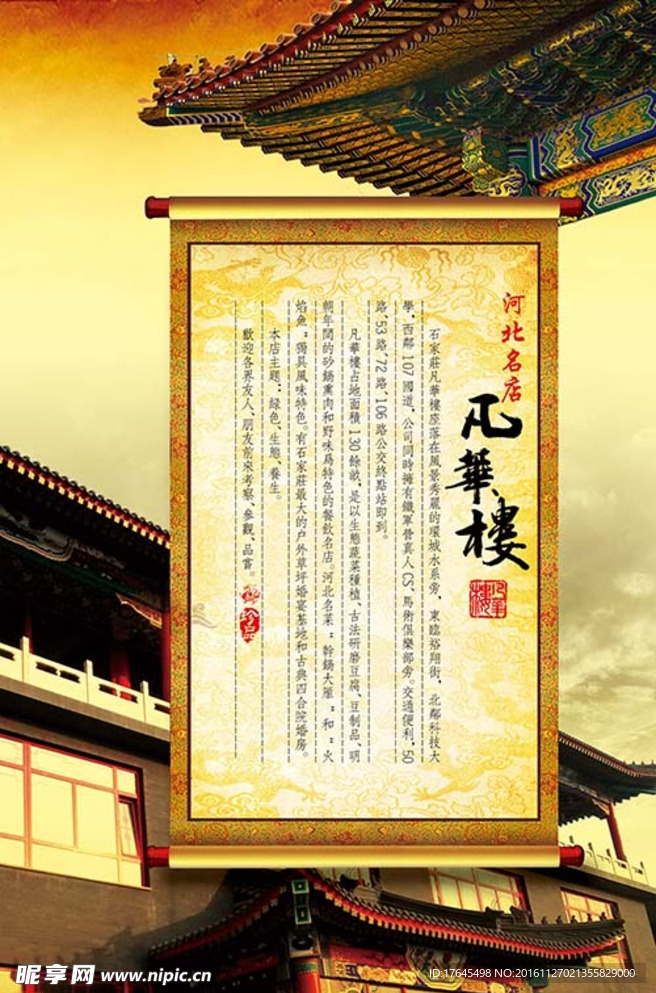 河北名店
凡華樓
凡華樓
石家莊凡華樓座落在風景秀麗的環城水系旁，東臨裕翔街，北鄰科技大
學，西鄰107國道，公司同時擁有鐵軍營真人CS、馬術俱樂部旁。交通便利，50
路、53路、72路、106路公交終點站即到。
凡華樓占地面積130餘畝，是以生態蔬菜種植、古法研磨豆腐、豆制品、明
朝年間的砂鍋熏肉和野味爲特色的餐飲名店。河北名菜：幹鍋大雁：和：火
焰魚：獨具風味特色。有石家莊最大的户外草坪婚宴基地和古典四合院婚房。
本店主題：綠色、生態、養生。
歡迎各界友人、朋友前來考察、參觀、品嘗。
珍品
昵享网 www.nipic.cn
ID:17645498 NO:20161127021355829000